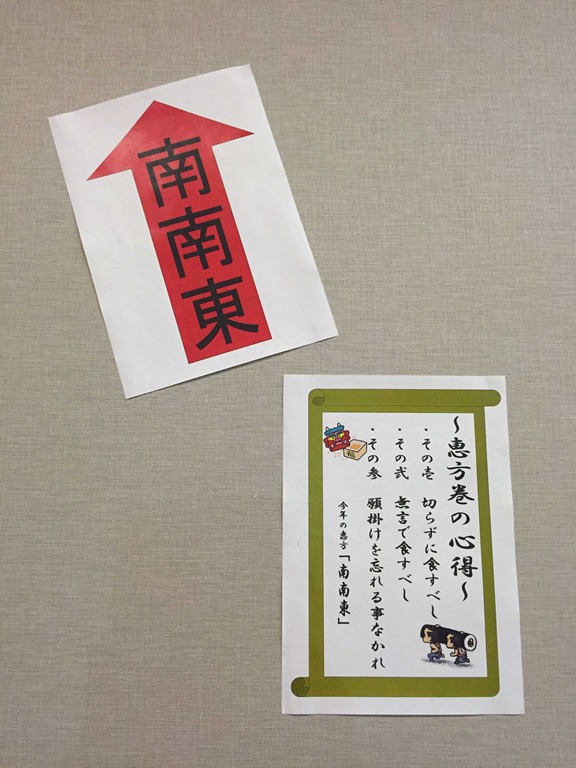 南南東
～恵方巻の心得～
・その壱 切らずに食すべし
・その弐 無言で食すべし
・その参 願掛けを忘れる事なかれ
今年の恵方「南南東」
福